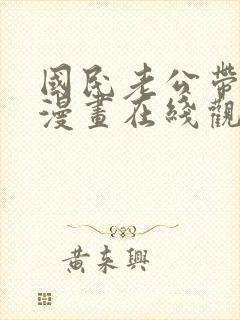 國民老公帶
漫畫在綫觀
黃來興